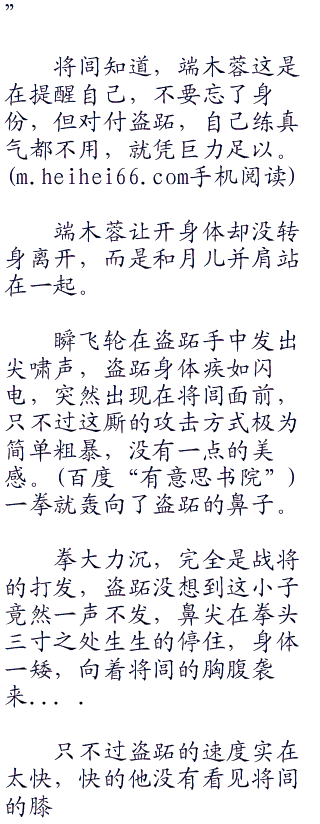 ”
将闾知道，端木蓉这是
在提醒自己，不要忘了身
份，但对付盗跖，自己练真
气都不用，就凭巨力足以。
(m.heihei66.com手机阅读)
端木蓉让开身体却没转
身离开，而是和月儿并肩站
在一起。
瞬飞轮在盗跖手中发出
尖啸声，盗跖身体疾如闪
电，突然出现在将闾面前，
只不过这厮的攻击方式极为
简单粗暴，没有一点的美
感。(百度“有意思书院”)
一拳就轰向了盗跖的鼻子。
拳大力沉，完全是战将
的打发，盗跖没想到这小子
竟然一声不发，鼻尖在拳头
三寸之处生生的停住，身体
一矮，向着将闾的胸腹袭
来．．．．
只不过盗跖的速度实在
太快，快的他没有看见将闾
的膝